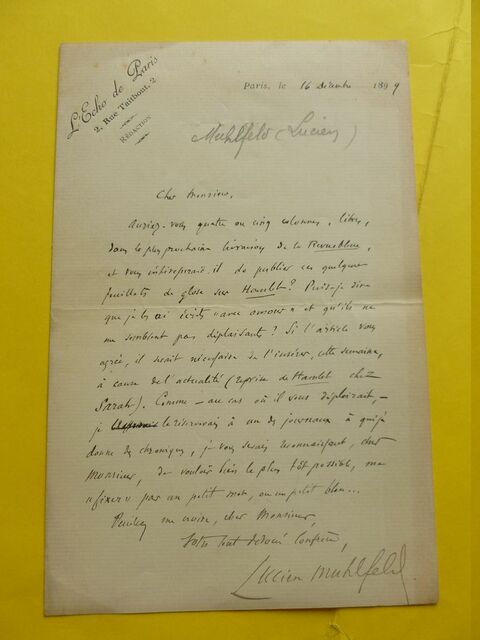 L'Echo de Paris
2, Rue Taitbout, 2
RÉDACTION
Paris, le 16 Décembre 1899
Muhlfeld (Lucien)
Cher Monsieur,
Auriez-vous quatre ou cinq colonnes, libres,
dans la plus prochaine livraison de la Revue bleue,
et vous intéresserait-il de publier ces quelques
feuillets de glose sur Hamlet? Puis-je dire
que je les ai écrits "avec amour" et qu'ils ne
me semblent pas déplaisants? Si l'article vous
agrée, il serait nécessaire de l'insérer, cette semaine,
à cause de l'actualité (reprise de Hamlet chez
Sarah). Comme - au cas où il vous déplairait, -
je le réserverais à un des journaux à qui je
donne des chroniques, je vous serais reconnaissant, cher
Monsieur, de vouloir bien le plus tôt possible, me
"fixer" par un petit mot, ou un petit bleu...
Veuillez me croire, cher Monsieur,
Votre tout dévoué Confrère,
Lucien Muhlfeld